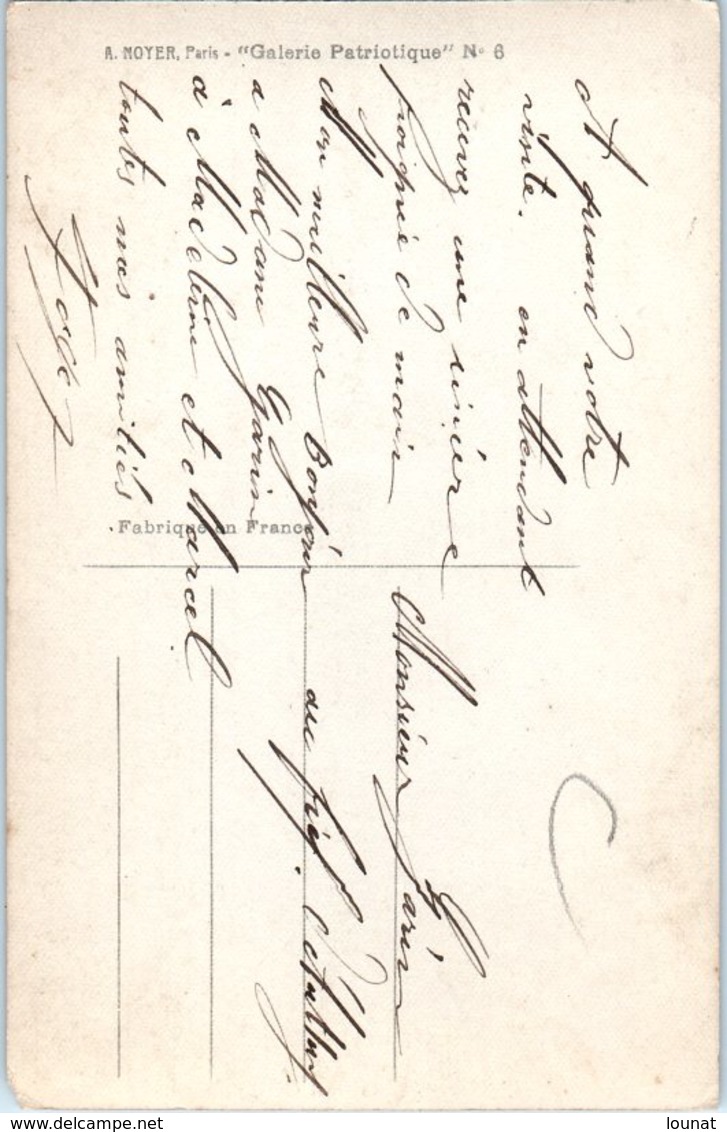 A. NOYER, Paris - "Galerie Patriotique" No 6
A quand votre
visite. en attendant
recevez une sincère
poignée de main
Mon meilleure Bonjour
a Madame Garin
à Madeleine et Marcel
toutes mes amitiés
Fabriqué en France
Monsieur Garin
au fief.
lounat